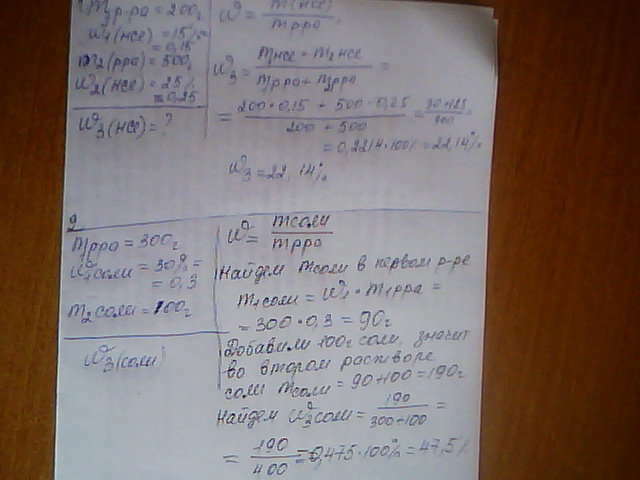 m1 р-ра = 200г
w1(HCl) = 15% =
= 0,15
m2(рра) = 500г
w2(HCl) = 25%
= 0,25
w3(HCl) = ?
w = m(HCl) / m рра
w3 = m1HCl + m2HCl / m1рра + m2рра =
= 200 · 0,15 + 500 · 0,25 / 200 + 500 = 30+125 / 700 =
= 0,2214 · 100% = 22,14%
w3 = 22,14%
2
m1рра = 300г
w1соли = 30% =
= 0,3
m2соли = 100г
w3(соли)
w = mсоли / mрра
Найдем mсоли в первом р-ре
m1соли = w1 · m1рра =
= 300 · 0,3 = 90г
Добавили 100г соли, значит
во втором растворе
соли mсоли = 90+100 = 190г
Найдем w3соли = 190 / 300+100 =
= 190 / 400 = 0,475 · 100% = 47,5%